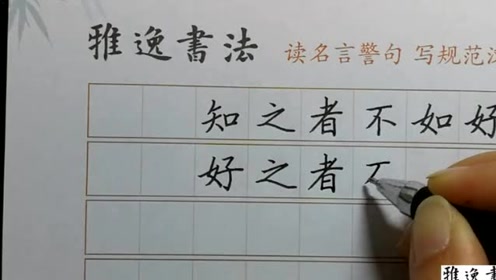 雅逸書法
读名言警句 写规范
知之者不如好
好之者
雅逸書